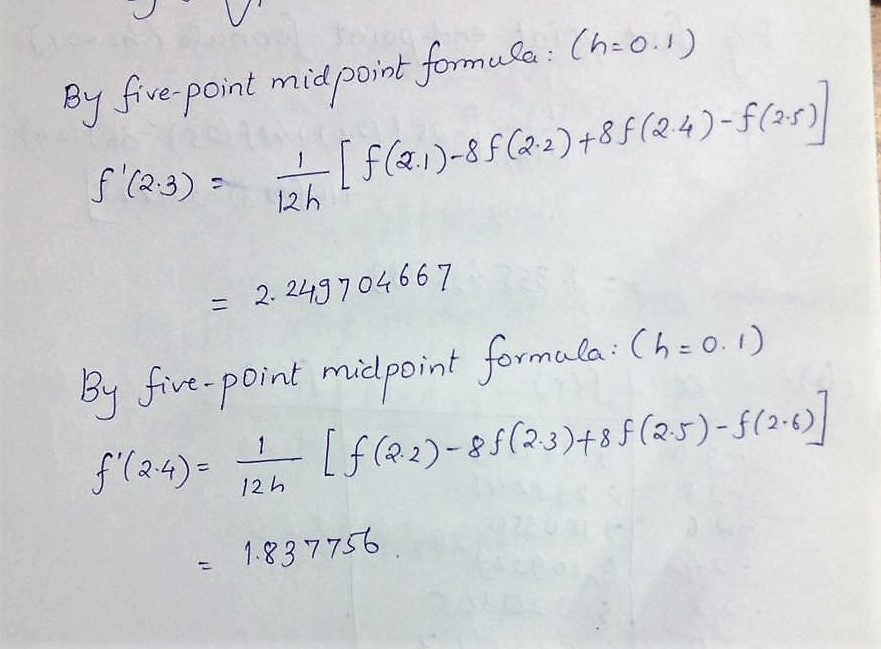 By five-point midpoint formula: (h=0.1)
f'(2.3) = 1/12h [f(2.1)-8f(2.2)+8f(2.4)-f(2.5)]
= 2.249704667
By five-point midpoint formula: (h=0.1)
f'(2.4) = 1/12h [f(2.2)-8f(2.3)+8f(2.5)-f(2.6)]
= 1.837756.